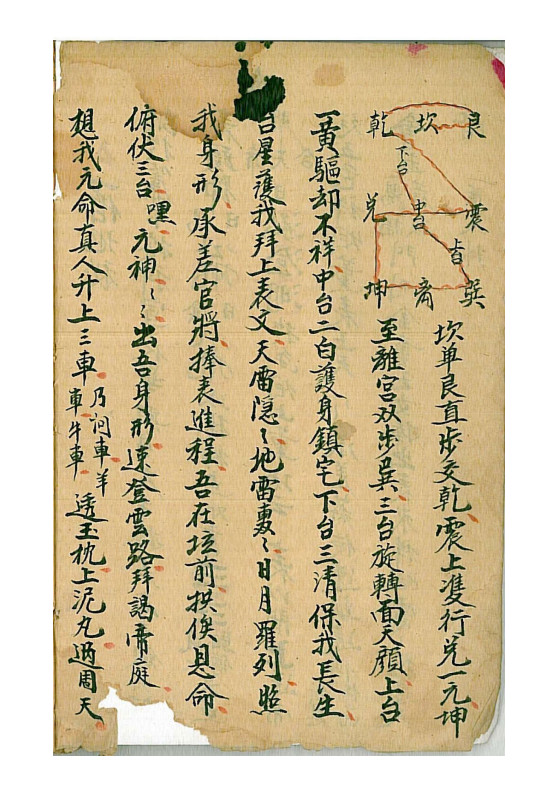 艮 坎 乾
下台
震 中台 兌
上台
巽 离 坤
坎单艮直步交乾震上双行兌一元坤
至離宮双步巽三台旋轉面天顔上台
一黃驅却不祥中台二白護身鎮宅下台三清保我長生
台星護我拜上表文天雷隐〻地雷轰〻日月羅列照
我身形承差官將捧表進程吾在坛前拱俟恩命
俯伏三台嘿元神〻出吾身形速登雲路拜謁帝庭
想我元命真人升上三車乃泀車羊車牛車透玉枕上泥丸過周天